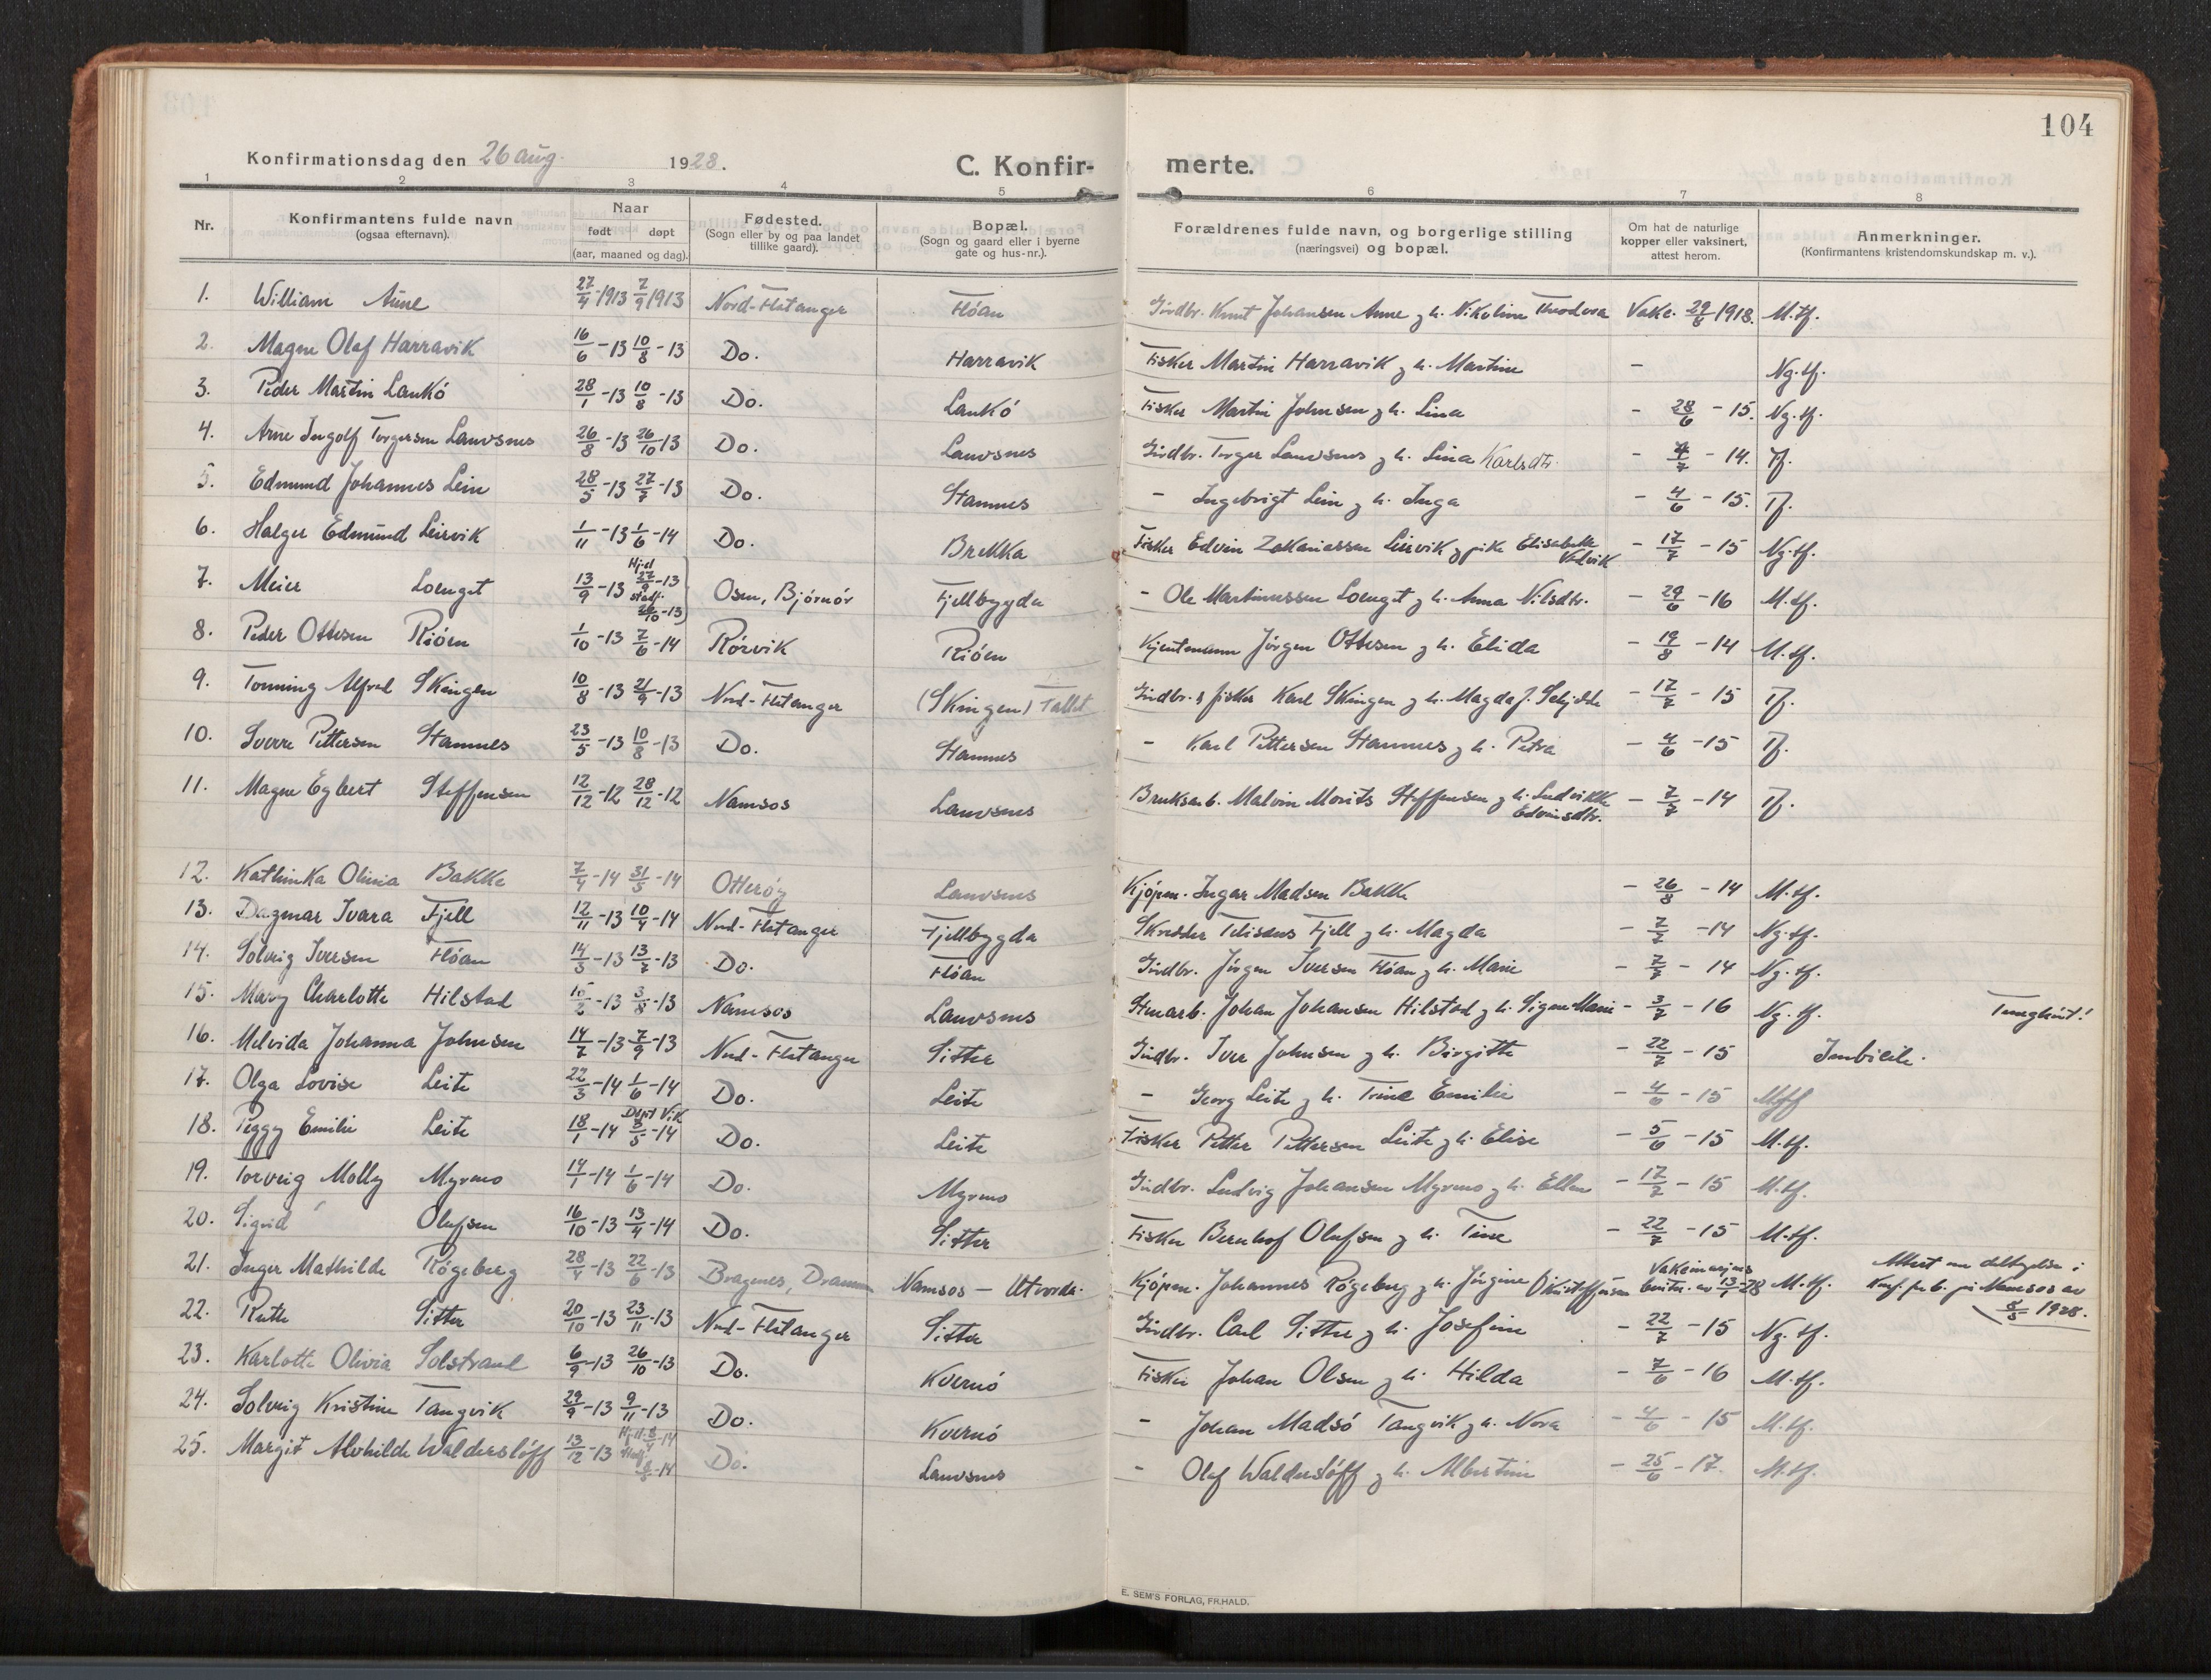 104
Konfirmationsdag den 26 aug. 1928. C. Konfirmerte.
1 2 3 4 5 6 7 8
Nr. Konfirmantens fulde navn (ogsaa efternavn). Naar født døpt (aar, maaned og dag). Fødested. (Sogn eller by og paa landet tillike gaard). Bopæl. (Sogn og gaard eller i byerne gate og hus-nr.). Forældrenes fulde navn, og borgerlige stilling (næringsvei) og bopæl. Om hat de naturlige kopper eller vaksinert, attest herom. Anmerkninger. (Konfirmantens kristendomskundskap m. v.).
1. William Aune 27/4-1913 7/9 1913 Nord-Flatanger Flóan Gårdbr. Knut Johansen Aune g h. Nikoline Theodora Vakc. 29/6 1918. M.tf.
2. Magne Olaf Harravik 16/6-13 10/8-13 Do. Harravik Fisker Martin Harravik g h. Martine - Ng.tf.
3. Peder Martin Laukó 28/1-13 10/8-13 Do. Laukó Fisker Martin Johnsen g h. Lina - 28/6-15. Ng.tf.
4. Arne Ingolf Torgersen Lauvsnes 26/8-13 26/10 13 Do. Lauvsnes Gårdbr. Torger Lauvsnes g h. Lina Karlsdtr. - 7/7-14. Tf.
5. Edmund Johannes Lein 28/5-13 27/7-13 Do. Stamnes - Ingebrigt Lein g h. Inga - 4/6-15. Tf.
6. Halger Edmund Leirvik 1/11-13 1/6-14 Do. Brekka Fisker Edvin Zakariassen Leirvik g pike Elisabeth Vedvik - 17/7-15 Ng.tf.
7. Meier Loenget 13/9-13 Hj.d 27/9-13 stadf. 26/10-13 Osen, Bjórnór Fjellbygda - Ole Martinussen Loenget g h. Anna Nilsdtr. - 29/6-16 M.tf.
8. Peder Ottesen Rióen 1/10-13 7/6-14 Rórvik Rióen Kjentmann Jórgen Ottesen g h. Elida - 19/8-14 M.tf.
9. Tonning Alfred Skingen 10/8-13 21/9-13 Nord-Flatanger (Skingen) Gårdbr. & fisker Karl Skingen g h. Magda J. - 17/7-15 Tf.
10. Sverre Pettersen Stamnes 23/5-13 10/8-13 Do. Stamnes - Karl Pettersen Stamnes g h. Petra - 4/6-15 Tf.
11. Magne Egbert Steffensen 12/12-12 28/12-12 Namsos Lauvsnes Bruksarb. Malvin Morits Steffensen g h. Ludvikke Edvinsdtr. - 7/7-14 Tf.
12. Kathinka Olivia Bakke 7/4-14 31/5-14 Otterøy Lauvsnes Kjópm. Ingar Madsen Bakke - 26/8-14 M.tf.
13. Dagmar Ivara Fjell 12/11-13 10/4-14 Nord-Flatanger Fjellbygda Skredder Fjell g h. Magda - 7/7-14 Ng.tf.
14. Solveig Iversen Flóan 14/3-13 13/7-13 Do. Flóan Gårdbr. Jórgen Iversen Flóan g h. Marie - 7/7-14 Ng.tf.
15. Mary Charlotte Hilstad 15/2-13 3/8-13 Namsos Lauvsnes Stenarb. Johan Johansen Hilstad g h. Signe Marie - 3/7-16 Ng.tf. Tunghórt!
16. Melvida Johanna Johnsen 14/7-13 7/9-13 Nord-Flatanger Sitter Gårdbr. Iver Johnsen g h. Birgitte - 22/7-15 Imbicile.
17. Olga Lovise Leite 22/3-14 1/6-14 Do. Leite - Georg Leite g h. Trine Emilie - 4/6-15 Mtf
18. Peggy Emilie Leite 18/1-14 Dópt Vik 3/5-14 Do. Leite Fisker Petter Pettersen Leite g h. Elise - 5/6-15 M.tf.
19. Torveig Molly Myrmo 14/1-14 1/6-14 Do. Myrmo Gårdbr. Ludvig Johansen Myrmo g h. Ellen - 17/7-15 M.tf.
20. Sigrid Olufsen 16/10-13 13/4-14 Do. Sitter Fisker Bernhof Olufsen g h. Tine - 22/7-15 M.tf.
21. Inger Mathilde Rógeberg 28/4-13 22/6-13 Bragenes, Drammen Namsos - Utvorda. Kjópm. Johannes Rógeberg g h. Jórgine Kristoffersen Vaksinasjons bevitn. av 13/7-28 M.tf. Attest om deltagelse i Konf. forb. på Namsos av 8/5 1928.
22. Ruth Sitter 20/10-13 23/11-13 Nord-Flatanger Sitter Gårdbr. Carl Sitter g h. Josefine - 22/7-15 Ng.tf.
23. Karlotte Olivia Solstrand 6/9-13 26/10-13 Do. Kvernó Fisker Johan Olsen g h. Hilda - 7/6-16 M.tf.
24. Solveig Kristine Tangvik 29/9-13 9/11-13 Do. Kvernó - Johan Madsó Tangvik g h. Nora - 4/6-15 M.tf.
25. Margit Alvhilde Walderslóff 13/12-13 Hj.d. 8/4-14 Stadf. -14 Do. Lauvsnes - Olaf Walderslóff g h. Albertine - 25/6-17. M.tf.
E. SEM'S FORLAG, FR.HALD.